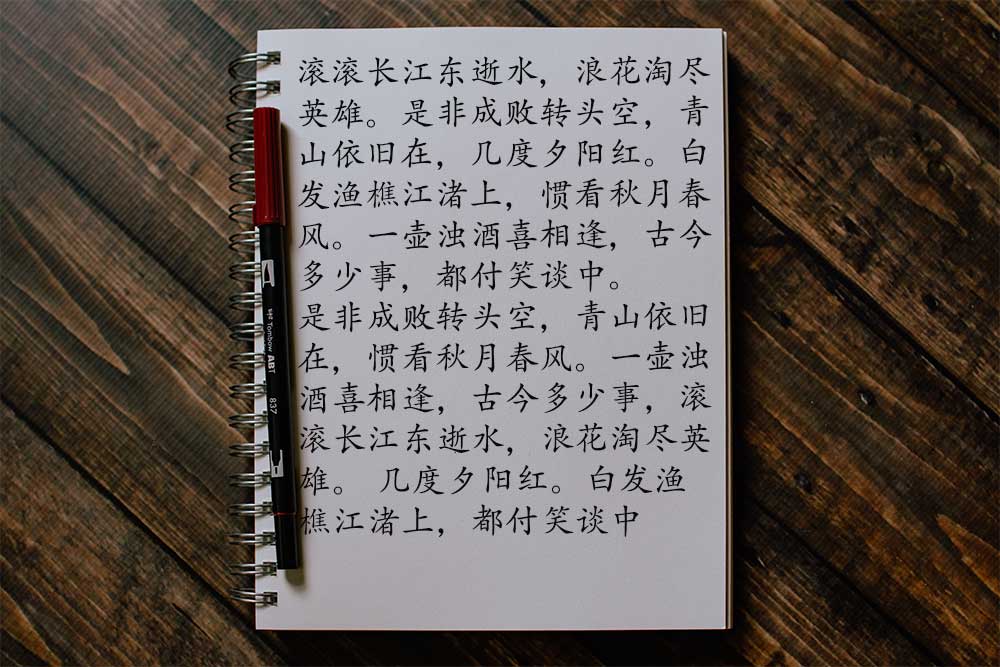 滚滚长江东逝水，浪花淘尽
英雄。是非成败转头空，青
山依旧在，几度夕阳红。白
发渔樵江渚上，惯看秋月春
风。一壶浊酒喜相逢，古今
多少事，都付笑谈中。
是非成败转头空，青山依旧
在，惯看秋月春风。一壶浊
酒喜相逢，古今多少事，滚
滚长江东逝水，浪花淘尽英
雄。 几度夕阳红。白发渔
樵江渚上，都付笑谈中
Tombow ABT 837